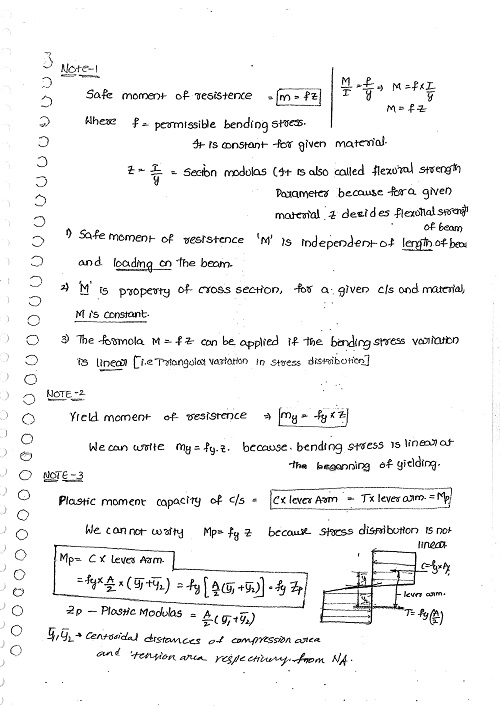 Note-1
Safe moment of resistence = m = fz
M/I = f/y ⇒ M = f x I/y
M = f Z
Where f = permissible bending stress.
It is constant for given material.
Z - I/y = Section modulas (It is also called flexural strength
Parameter because for a given
material z desides flexural strength
of beam
1) Safe moment of resistence 'M' is independent of length of beam
and loading on the beam.
2) 'M' is property of cross section, for a given c/s and material,
M is constant.
3) The formola M = f Z can be applied if the bending stress variation
is linear [i.e Triangular variation in stress distribution]
NOTE-2
Yield moment of resistence ⇒ my = fy x Z
We can write my = fy.z. because bending stress is linear at
the beganning of yielding.
NOTE-3
Plastic moment capacity of c/s = C x lever Arm = T x lever arm = Mp
We can not write Mp = fy Z because stress distribution is not
linear
Mp = C x Lever Arm
= fy x A/2 x (ȳ1 + ȳ2) = fy [A/2 (ȳ1 + ȳ2)] = fy Zp
Zp - Plastic Modulas = A/2 (ȳ1 + ȳ2)
lever arm.
T = fy (A/2)
ȳ1, ȳ2 → Centroidal distances of compression area
and tension area respectively from NA.